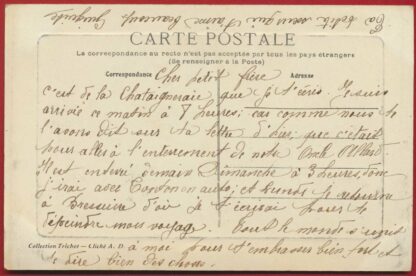 Ta petite sœur qui t'aime beaucoup
CARTE POSTALE
La correspondance au recto n'est pas acceptée par tous les pays étrangers
(Se renseigner à la Poste)
Correspondance
Adresse
Cher petit frère
C'est de la Chataigneraie que je t'écris. Je suis
arrivée ce matin à 8 heures; car comme nous te
l'avons dit sur ta lettre d' que c'était
pour aller à l'enterrement de notre Oncle
Il est enterré demain Dimanche à 3 heures, donc
j'irai avec en auto; et Lundi je retourne
à Bressuire d'où je t'écrirai pour te
dépeindre mon voyage. Tout le monde s'unit
à moi pour t'embrasser bien fort et
te dire bien des choses.
Collection Trichet — Cliché A. D.